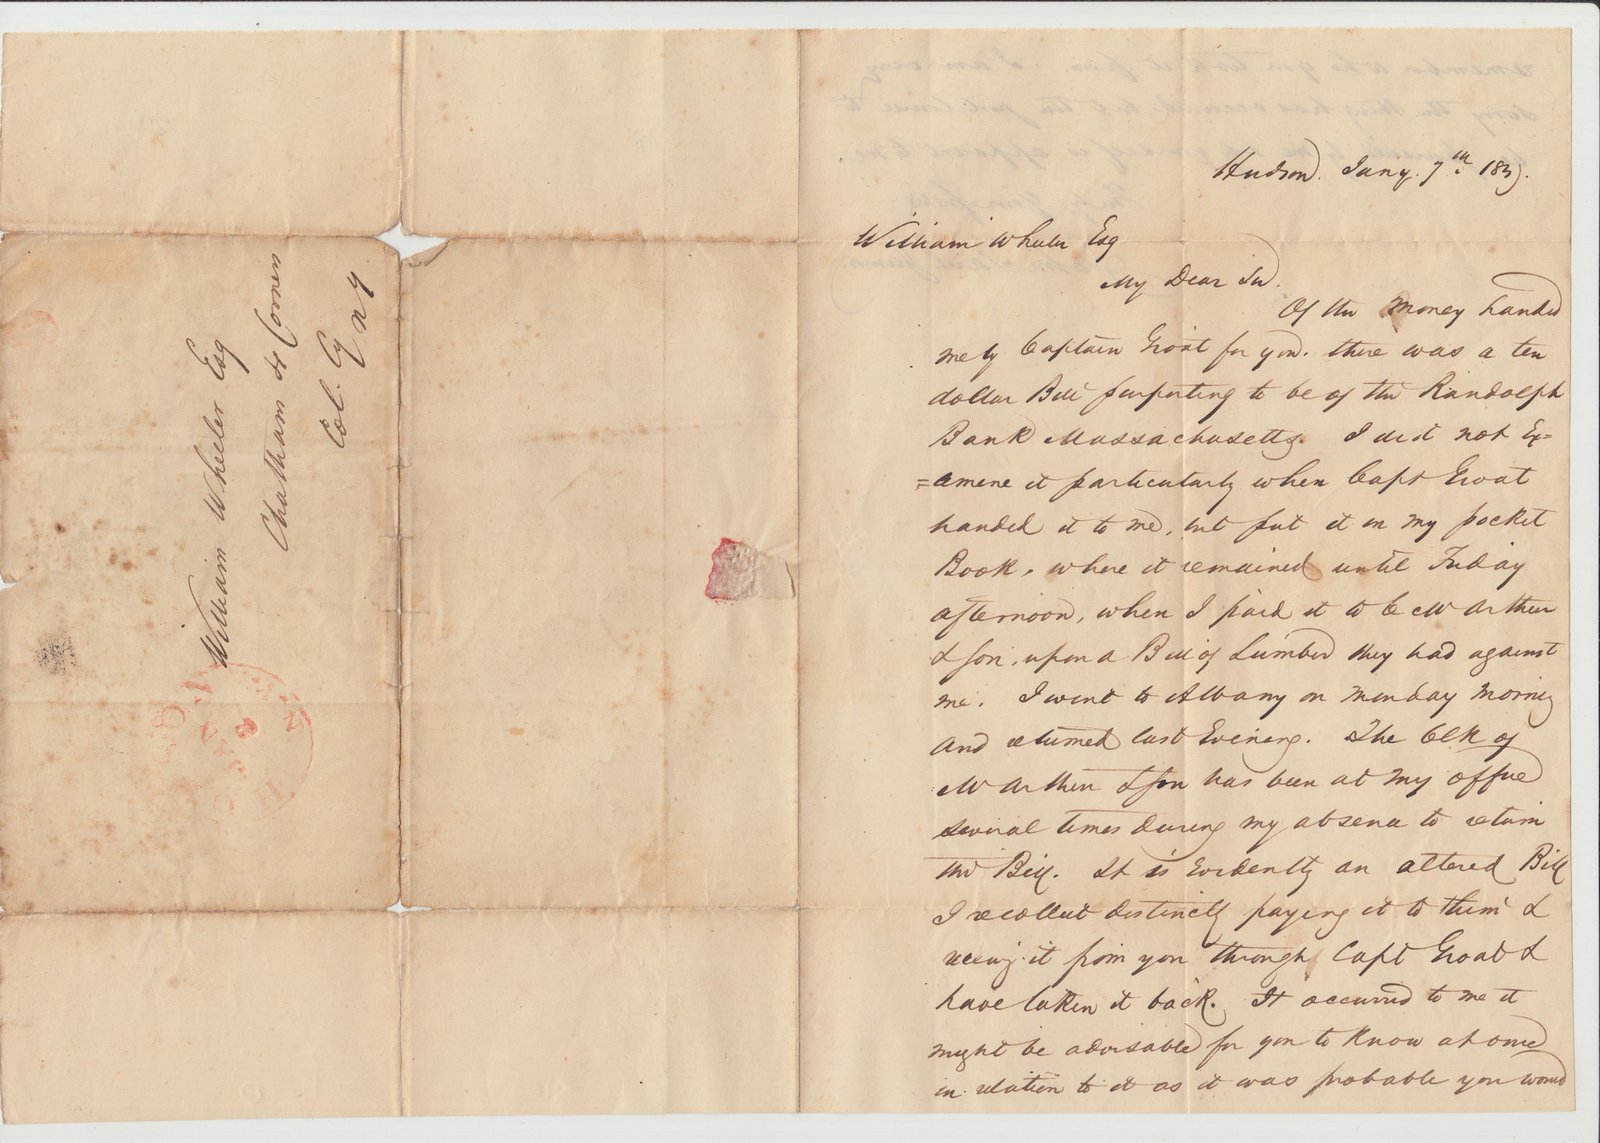 William Wheeler Esq
Chatham 4 Corners
Col. Cy
N Y
Hudson. Jany. 7th. 183
William Wheeler Esq
My Dear Sir.
Of the Money handed
me by Captain Groat for you. there was a ten
dollar Bill purporting to be of the Randolph
Bank Massachusetts. I did not Ex=
=amine it particularly when Capt Groat
handed it to me, but put it in my pocket
Book, where it remained until Friday
afternoon, when I paid it to McArthur
& Son, upon a Bill of Lumber they had against
me. I went to Albany on Monday Morning
and returned last Evening. The Clk of
McArthur & Son has been at my office
several times during my absence to return
the Bill. It is Evidently an altered Bill
I recollect distinctly paying it to them &
receivg it from you through Capt Groat &
have taken it back. It occurred to me it
might be advisable for you to know at once
in relation to it as it was probable you would